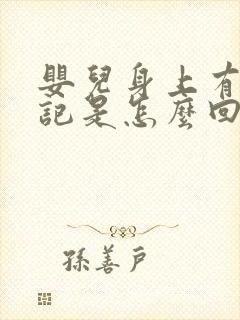 嬰兒身上有
記是怎麼回
孫善戶